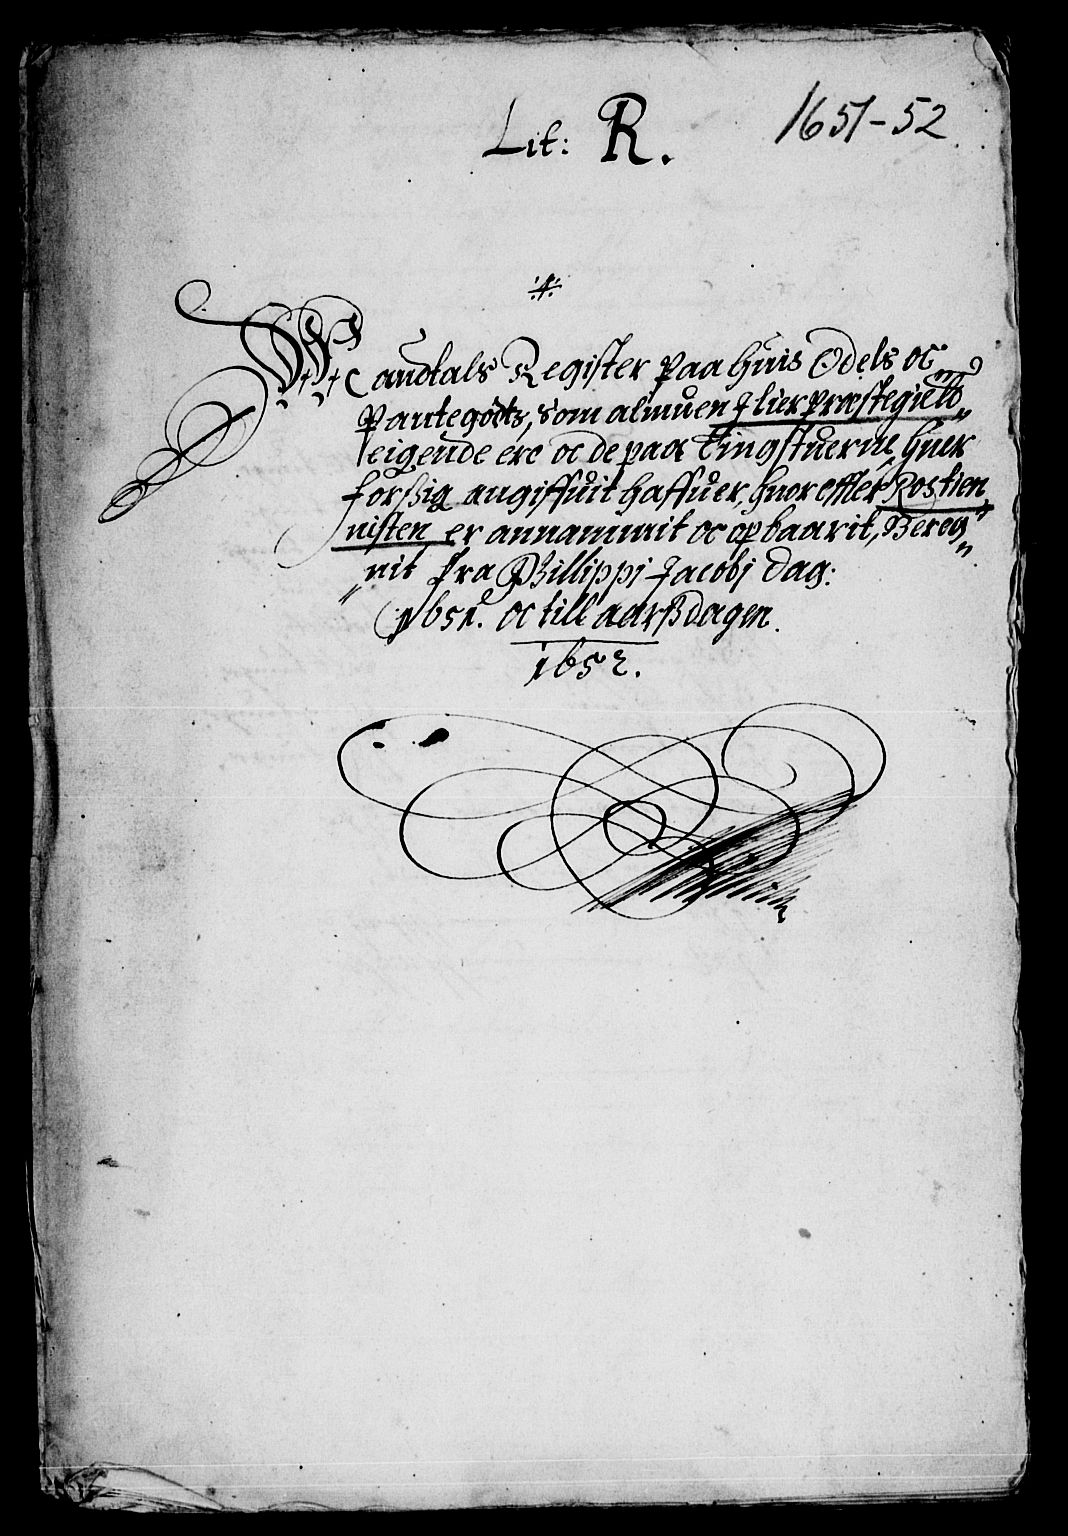 Lit: R.
1651-52
Mandtals Register Paa huis Odels oc
Pantegodts, som almuen J lier præstegield
eigende ere oc de paa Tingstuerne huer
forsig angiffuit haffuer, huor effter Rostien
nisten er annammit oc opbaarit, Bereg
nit fra Phillippi Jacobj dag:
1651. oc till aarßdagen
1652.